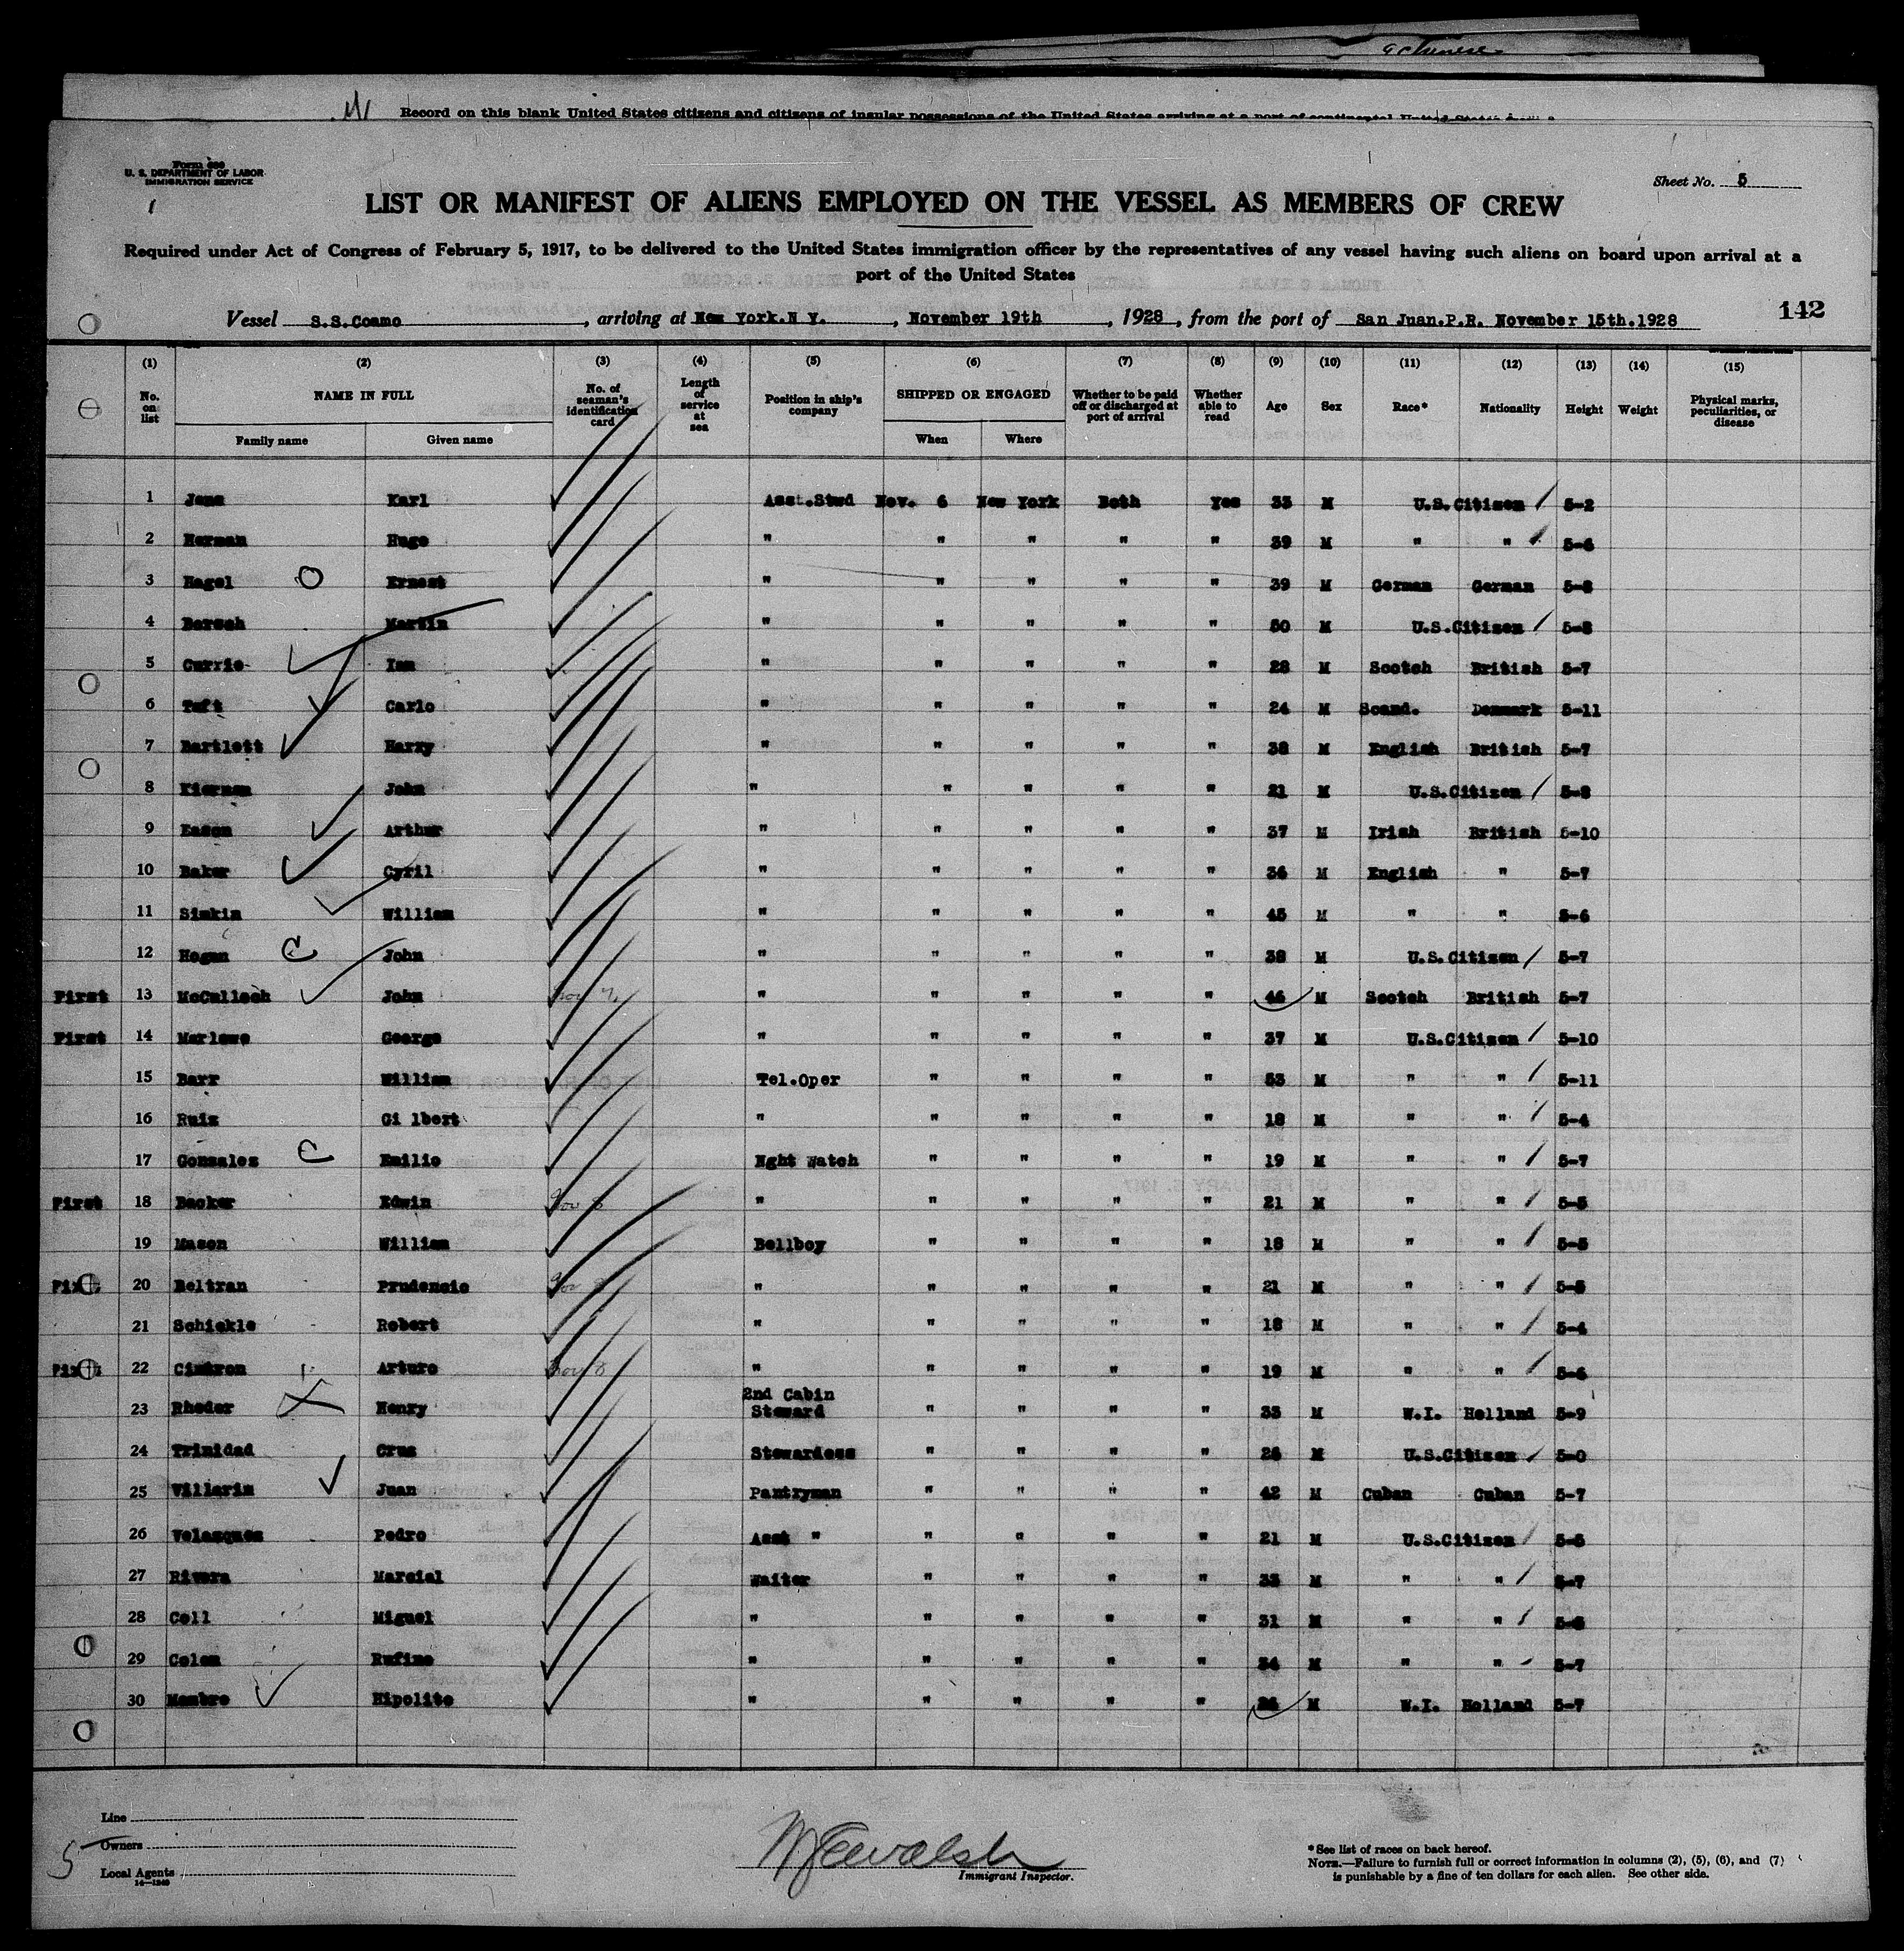 Record on this blank United States citizens and citizens of insular possessions of the United States arriving at a port of continental United States
U. S. DEPARTMENT OF LABOR
IMMIGRATION SERVICE
Sheet No. 5
LIST OR MANIFEST OF ALIENS EMPLOYED ON THE VESSEL AS MEMBERS OF CREW
Required under Act of Congress of February 5, 1917, to be delivered to the United States immigration officer by the representatives of any vessel having such aliens on board upon arrival at a
port of the United States
142
Vessel S.S.Coamo, arriving at New York.N Y., November 19th, 1928, from the port of San Juan.P.R. November 15th.1928
(1) (2) (3) (4) (5) (6) (7) (8) (9) (10) (11) (12) (13) (14) (15)
No. on list NAME IN FULL No. of seaman's identification card Length of service at sea Position in ship's company SHIPPED OR ENGAGED Whether to be paid off or discharged at port of arrival Whether able to read Age Sex Race* Nationality Height Weight Physical marks, peculiarities, or disease
Family name Given name When Where
1 Jens Karl Asst.Stwd Nov. 6 New York Both Yes 33 M U.S.Citizen 5-2
2 Herman Hugo " " " " " 39 M " " 5-6
3 Nagel Ernest " " " " " 39 M German German 5-8
4 Borsch Martin " " " " " 50 M U.S.Citizen 5-8
5 Currie Ian " " " " " 28 M Scotch British 5-7
6 Toft Carlo " " " " " 24 M Scand. Denmark 5-11
7 Bartlett Harry " " " " " 38 M English British 5-7
8 Kiernan John " " " " " 21 M U.S.Citizen 5-8
9 Eason Arthur " " " " " 37 M Irish British 5-10
10 Baker Cyril " " " " " 36 M English " 5-7
11 Simkin William " " " " " 45 M " " 5-6
12 Hogan John " " " " " 38 M U.S.Citizen 5-7
First 13 McCulloch John Nov 7 " " " " " 46 M Scotch British 5-7
First 14 Marlowe George " " " " " 37 M U.S.Citizen 5-10
15 Barr William Tel.Oper " " " " 53 M " " 5-11
16 Ruiz Gi lbert " " " " " 18 M " " 5-4
17 Gonzales Emilio Nght Watch " " " " 19 M " " 5-7
First 18 Becker Edwin Nov 8 " " " " " 21 M " " 5-5
19 Mason William Bellboy " " " " 18 M " " 5-5
First 20 Beltran Prudencio Nov 8 " " " " " 21 M " " 5-5
21 Schickle Robert " " " " " 18 M " " 5-4
First 22 Cintron Arturo Nov 8 " " " " " 19 M " " 5-6
23 Rhoder Henry 2nd Cabin Steward " " " " 33 M W.I. Holland 5-9
24 Trinidad Cruz Stewardess " " " " 26 M U.S.Citizen 5-0
25 Villarin Juan Pantryman " " " " 42 M Cuban Cuban 5-7
26 Velasquez Pedro Asst " " " " " 21 M U.S.Citizen 5-5
27 Rivera Marcial Waiter " " " " 33 M " " 5-7
28 Coll Miguel " " " " " 31 M " " 5-8
29 Colon Rufino " " " " " 34 M " " 5-7
30 Mambro Hipolito " " " " " M W.I. Holland 5-7
Line
Owners
Local Agents
5
Immigrant Inspector.
* See list of races on back hereof.
NOTE.—Failure to furnish full or correct information in columns (2), (5), (6), and (7)
is punishable by a fine of ten dollars for each alien. See other side.